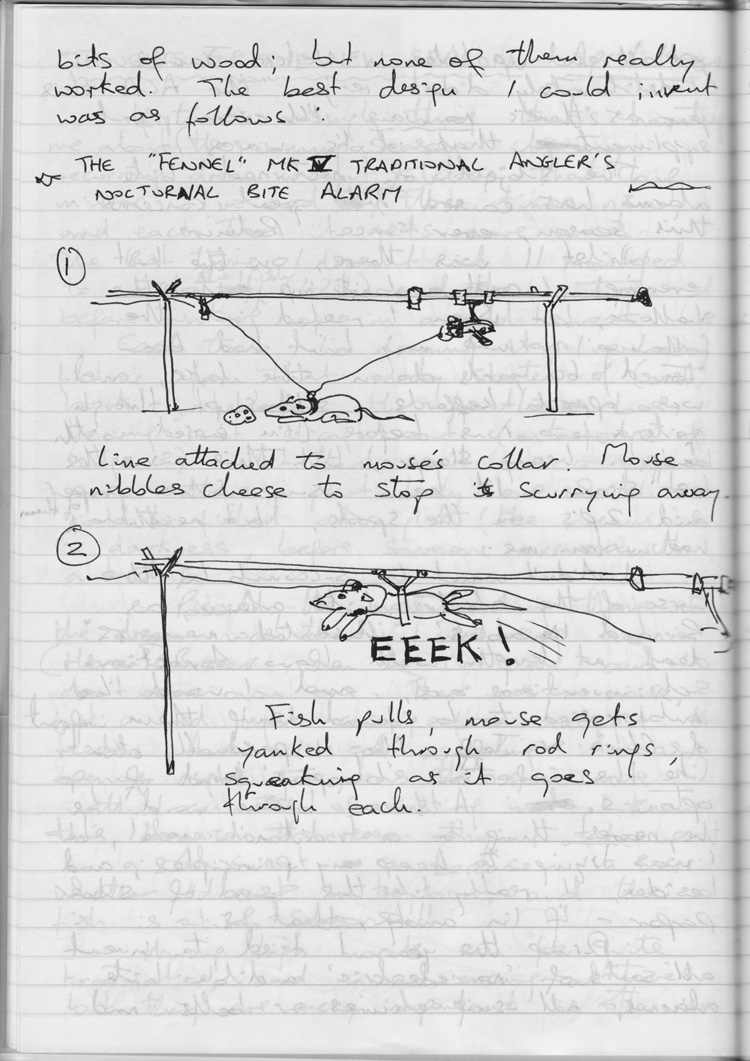 bits of wood; but none of them really
worked. The best design I could invent
was as follows:
THE "FENNEL" MK IV TRADITIONAL ANGLER'S
NOCTURNAL BITE ALARM
1
Line attached to mouse's collar. Mouse
nibbles cheese to stop it scurrying away
2
EEEK!
Fish pulls, mouse gets
yanked through rod rings,
squeaking as it goes
through each.